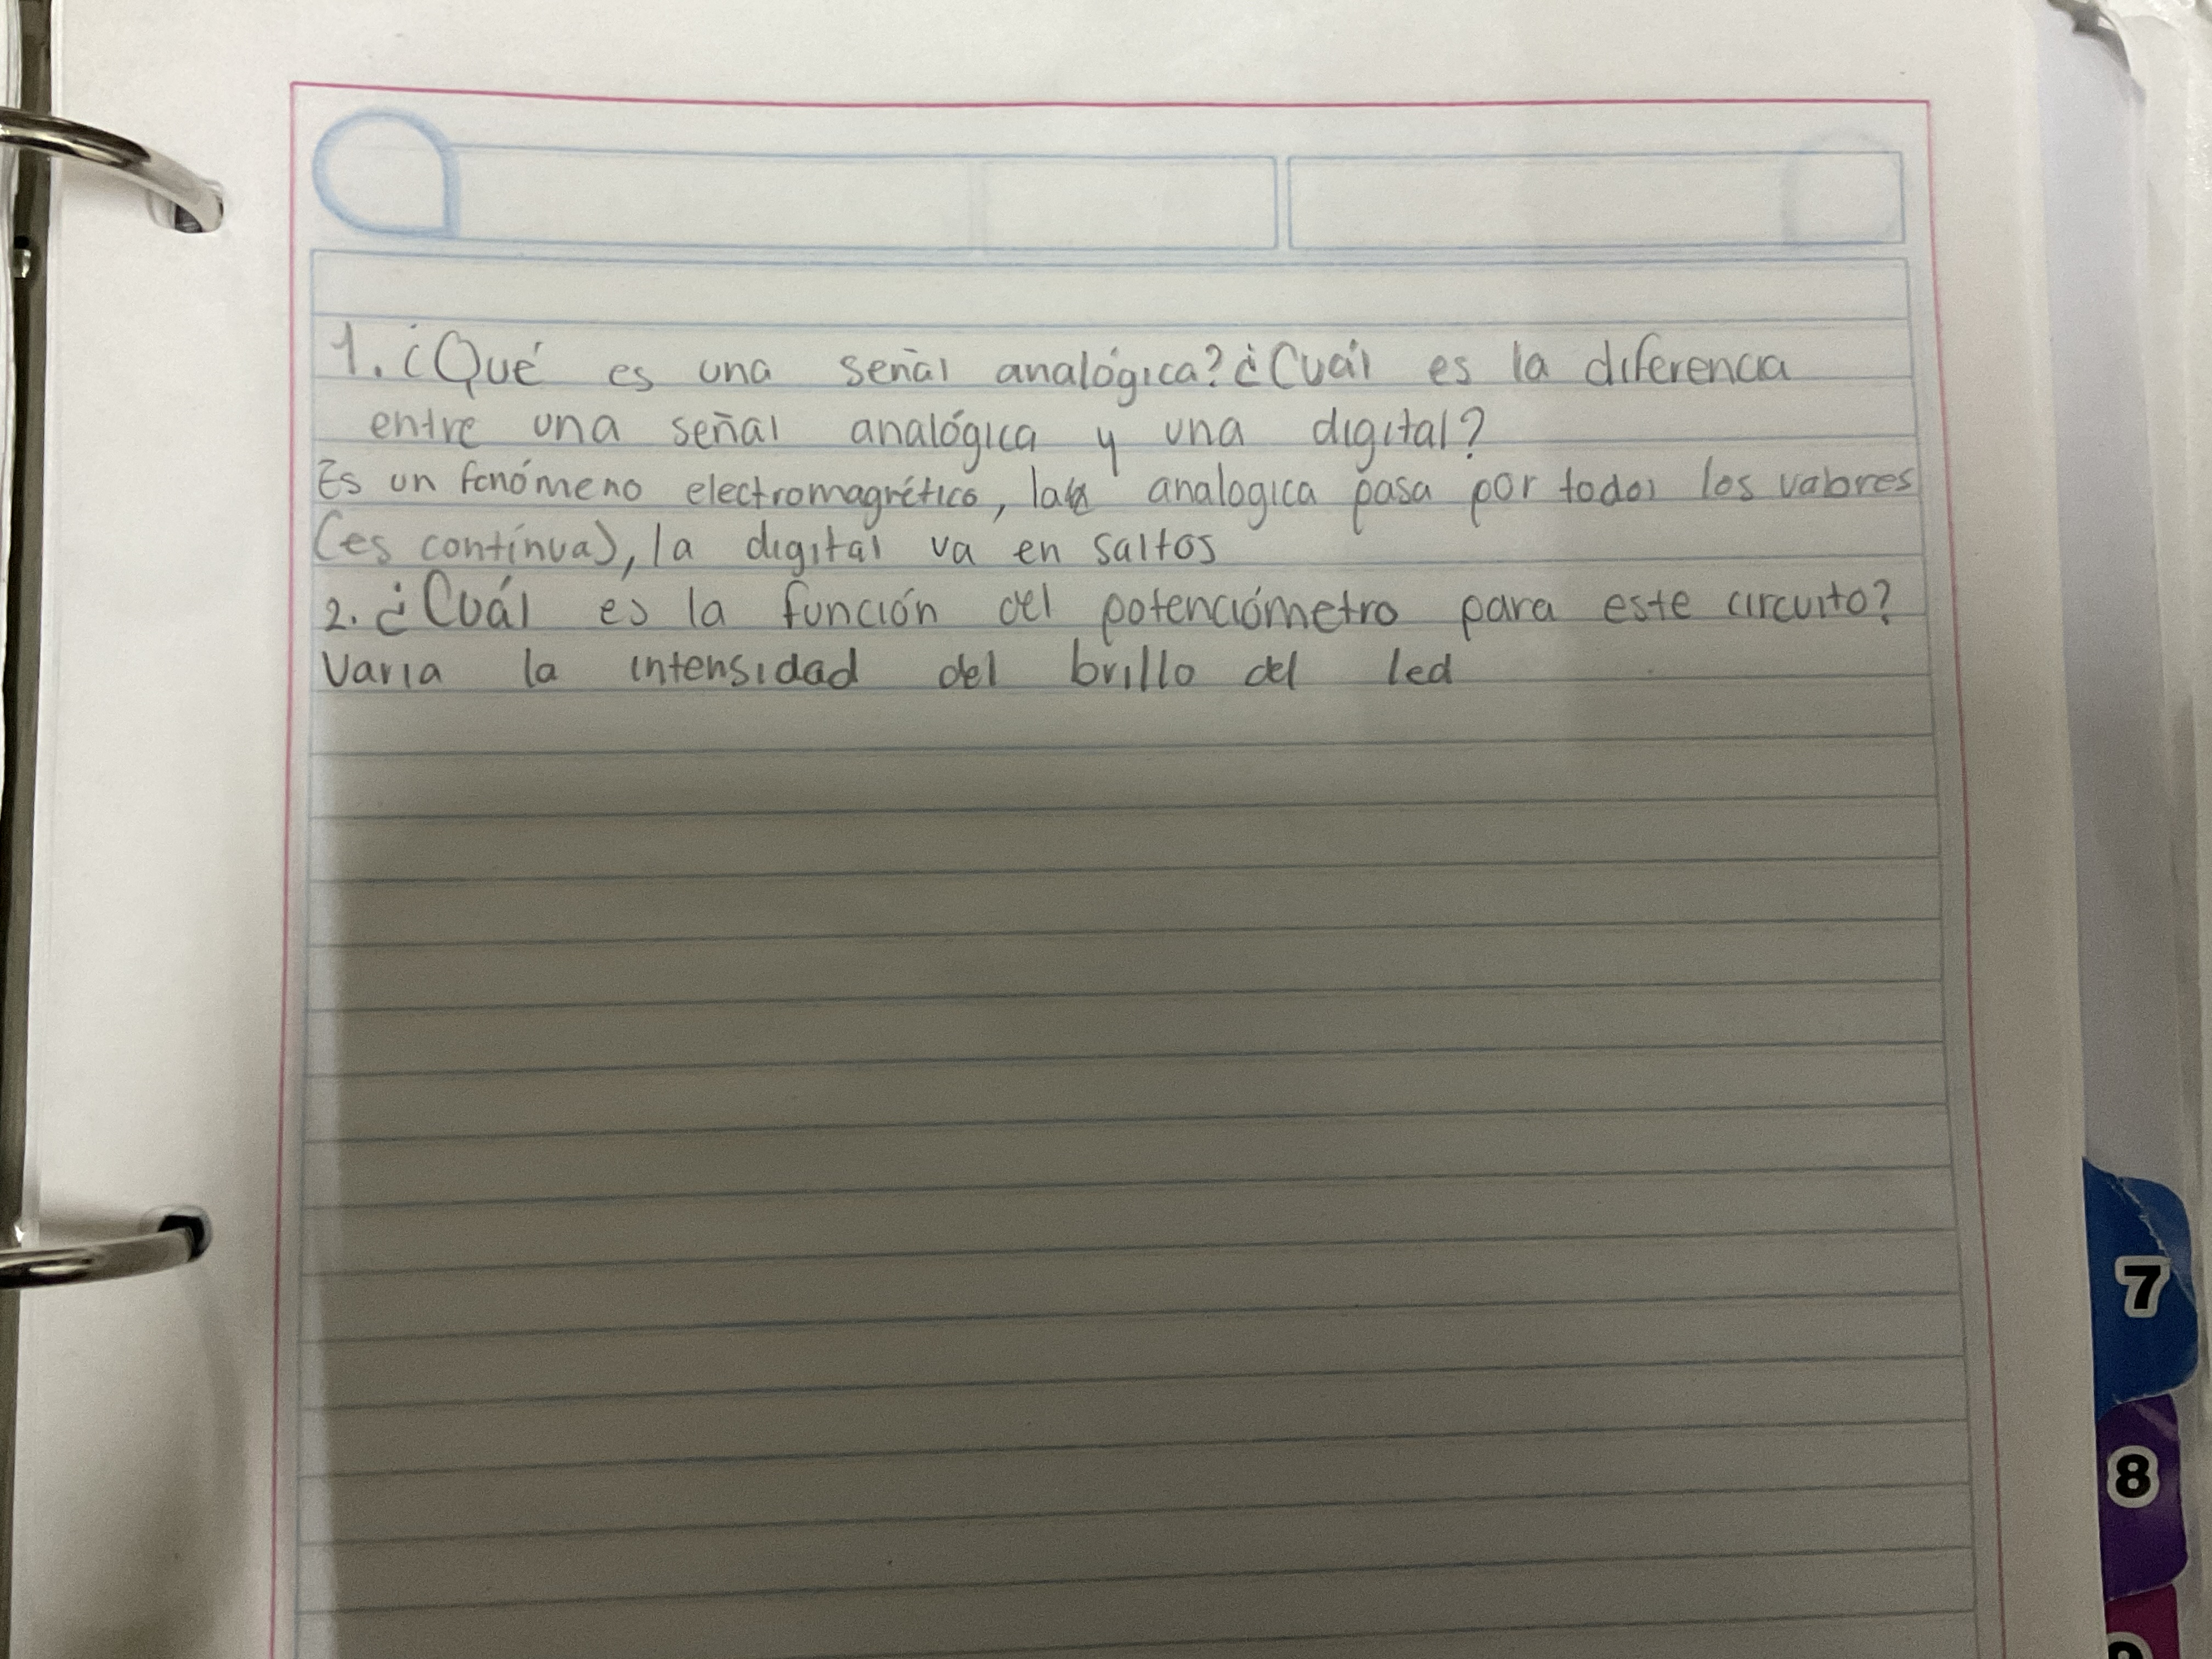 1. ¿Qué es una señal analógica? ¿Cuál es la diferencia
entre una señal analógica y una digital?
Es un fenómeno electromagnético, la analogica pasa por todos los valores
(es contínua), la digital va en saltos
2. ¿Cuál es la función del potenciómetro para este circuito?
Varia la intensidad del brillo del led
7
8